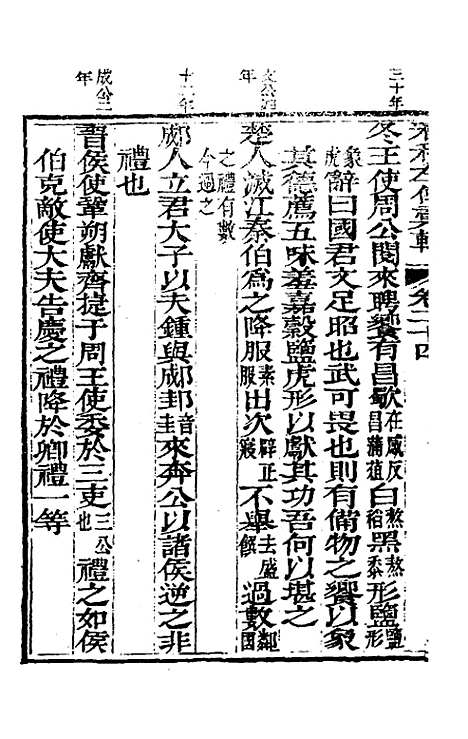 春秋左傳 卷二十四
三十年
冬王使周公閱來聘饗有昌歜在感反昌蒲葅白熬稻黑熬黍形鹽鹽形
象虎辭曰國君文足昭也武可畏也則有備物之饗以象
其德薦五味羞嘉穀鹽虎形以獻其功吾何以堪之
文公四年
楚人滅江秦伯爲之降服素服出次辟正寢不舉去盛饌過數鄰國
之禮有數今過之
十二年
郕人立君大子以夫鍾與郕邽音圭來奔公以諸侯逆之非
禮也
成公二年
晉侯使鞏朔獻齊捷于周王使委於三吏三公也禮之如侯
伯克敵使大夫告慶之禮降於卿禮一等